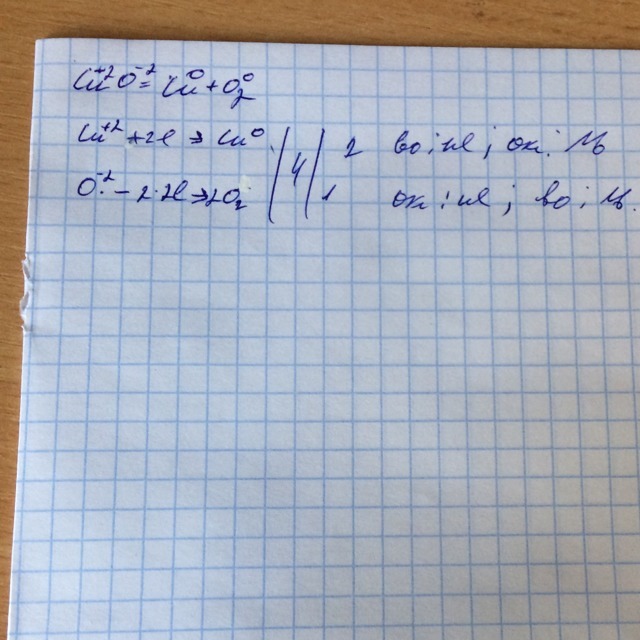 Cu⁺²O⁻² = Cu⁰ + O₂⁰
Cu⁺² + 2e → Cu⁰ | 4 | 2 во : ие ; ок : ль
O⁻² - 2·2e → 2O₂ | | 1 ок : ие ; во : ль.